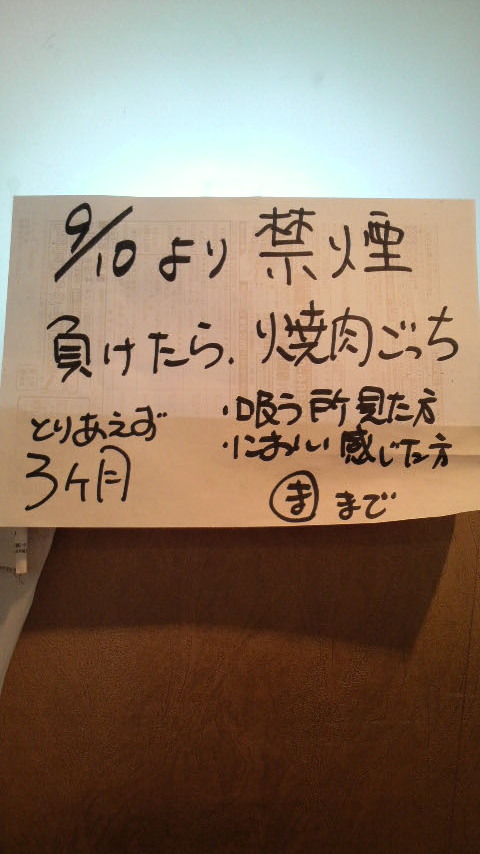 9/10 より 禁煙
負けたら、焼肉ごっち
とりあえず
3ヶ月
・吸う所見た方
・におい感じた方
ま まで